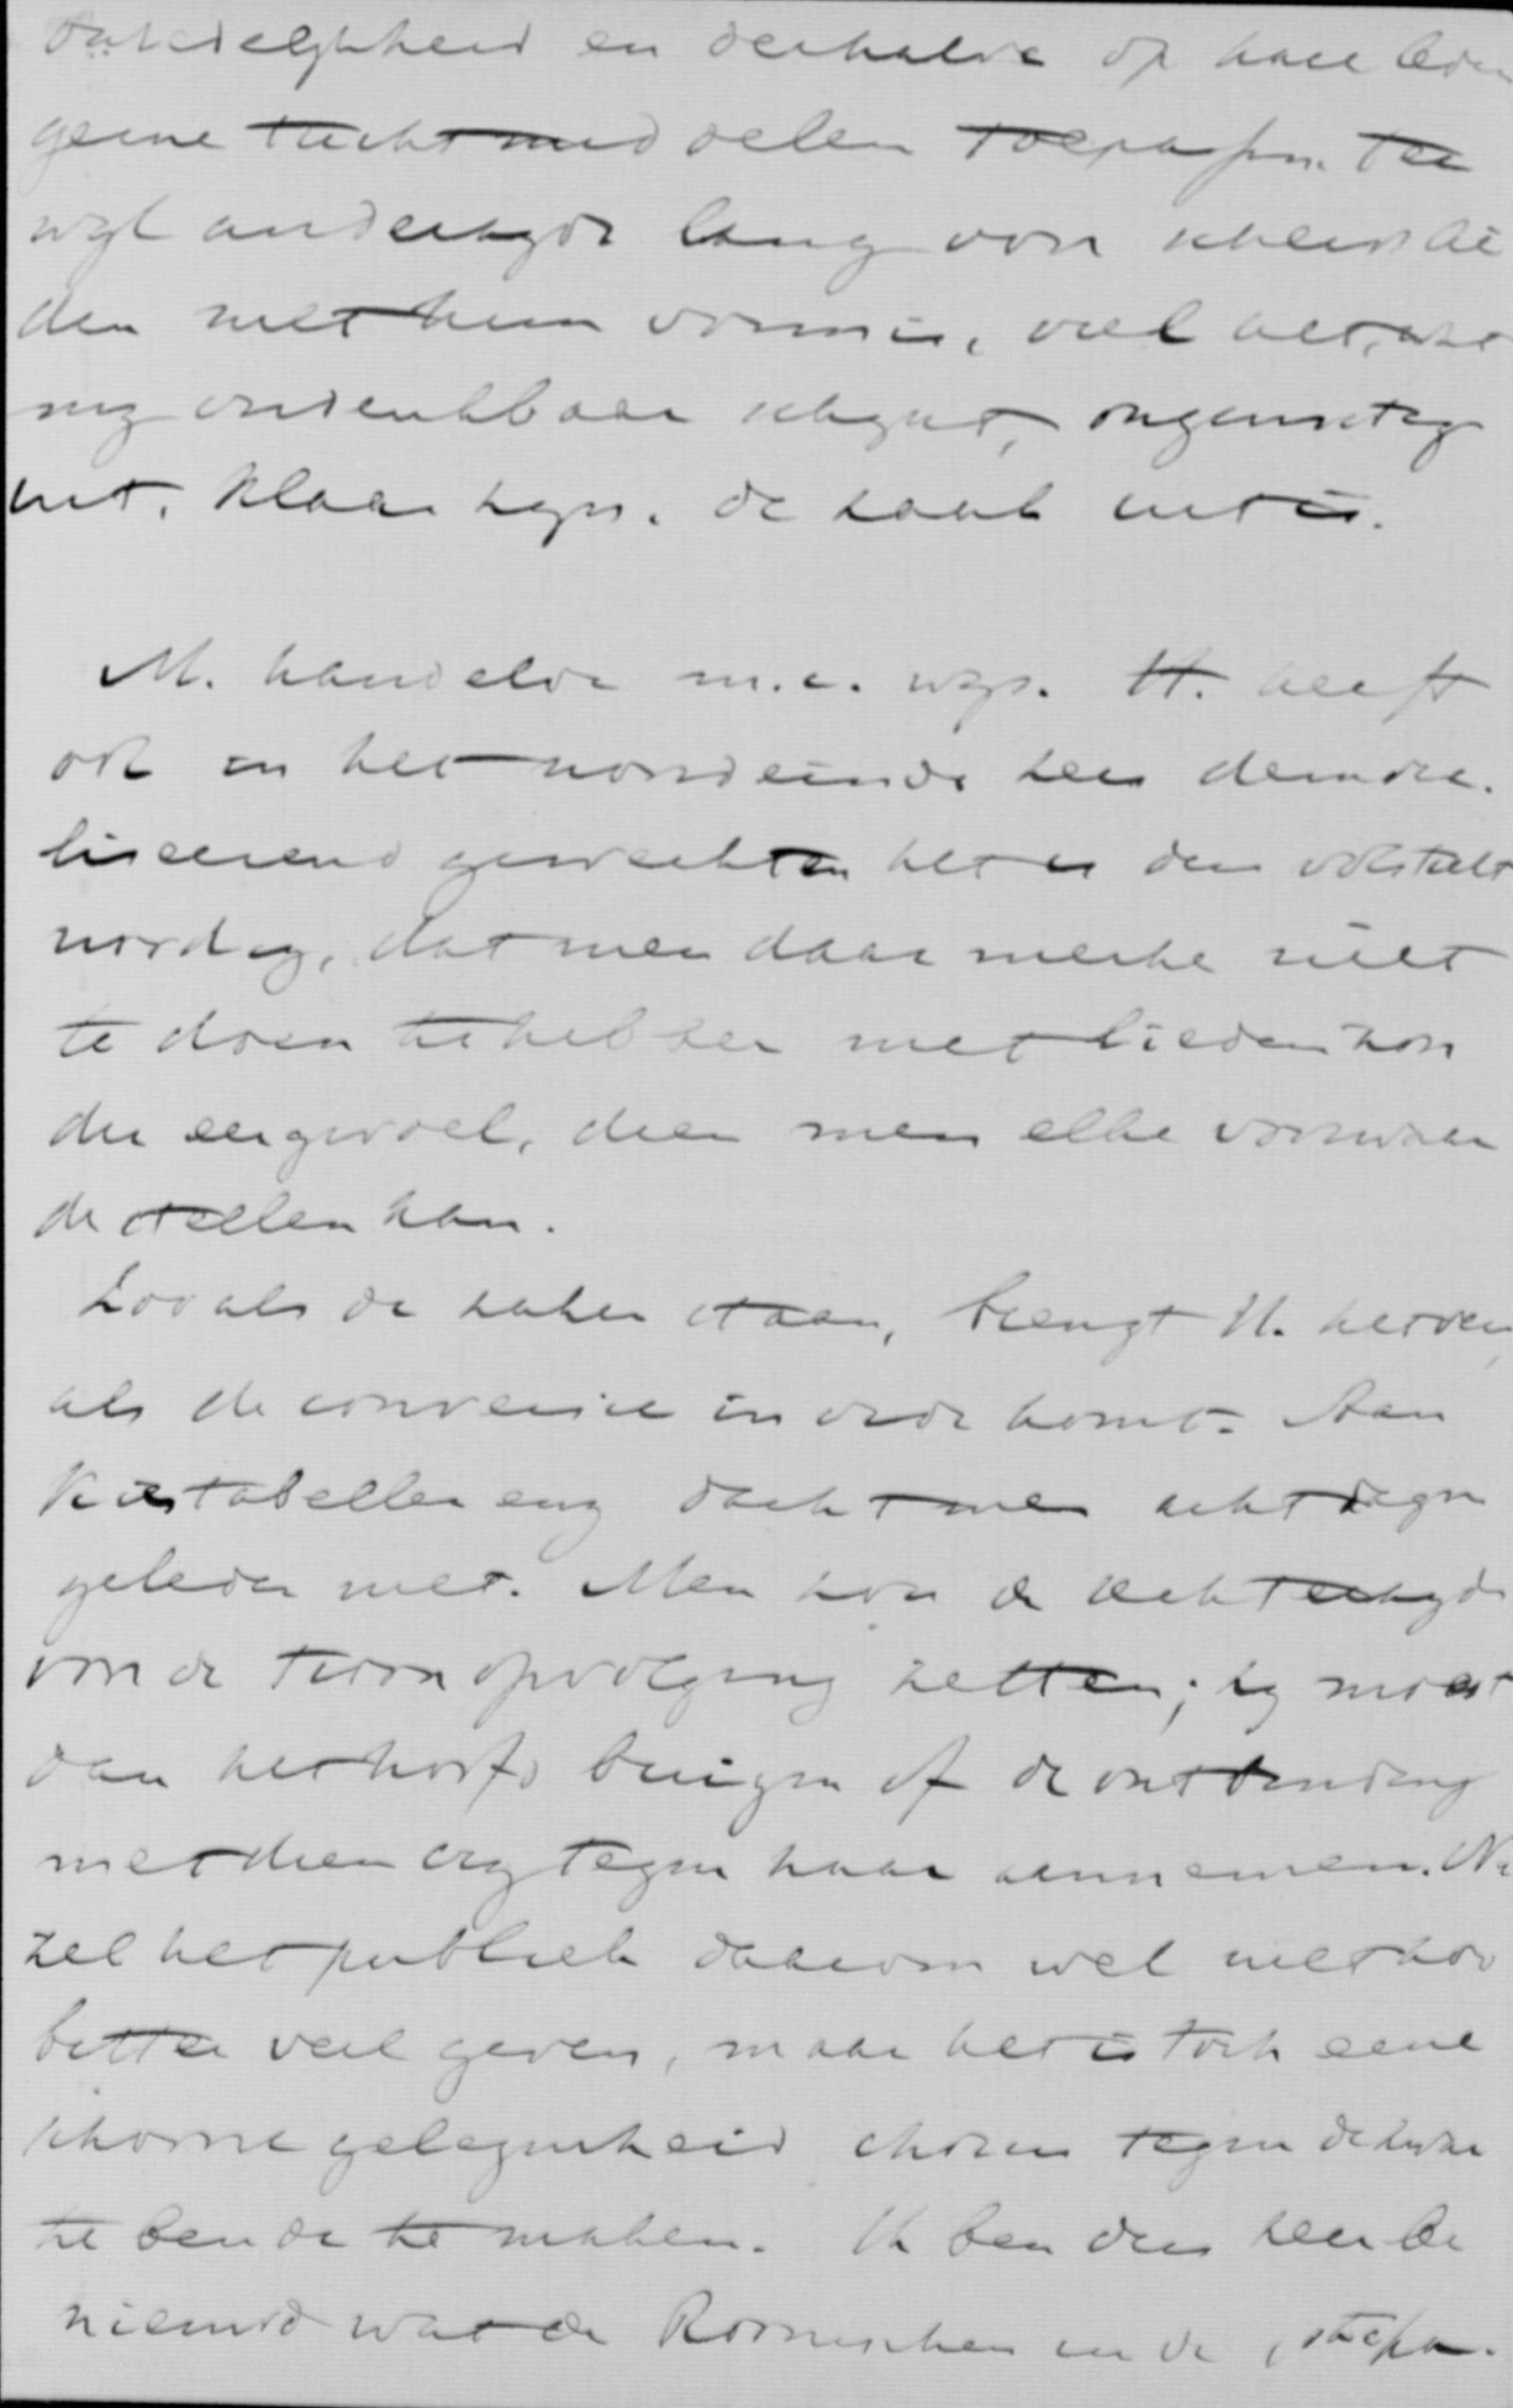 en derhalve op hare leden
geene tuchtmiddelen toepassen. Ter
wijl anderzijds lang voor scheidde
den met hem voornis, viel het, wat
mij ondenkbaar schijnt, ongunstig
uit. Klaar zijn. de zaak niet is.
M. handelde m.i. wijs. H. heeft
ook in het noordeinde zeer demora-
liseerend gewerkt en het is dus volstrekt
noodig, dat men daar merke niet
te doen te hebben met lieden zon
der eergevoel, dien men elke voorwaar
de stellen kan.
Zooals de zaken staan, brengt H. het ver,
als de conversie in orde komt. Aan
Kiestabel eng dacht men acht dagen
geleden niet. Men kon de rechterzijde
voor de troonopvolging zetten; zij moest
dan het hoofd buigen of de ontbinding
met dien erg tegen haar aannemen. Nu
zal het publiek daarom wel niet zoo
bitter veel geven, maar het is toch eene
schoone gelegenheid choren tegen de hunne
te bende te maken. Ik ben dus zeer be
nieuwd wat de Roomschen en de